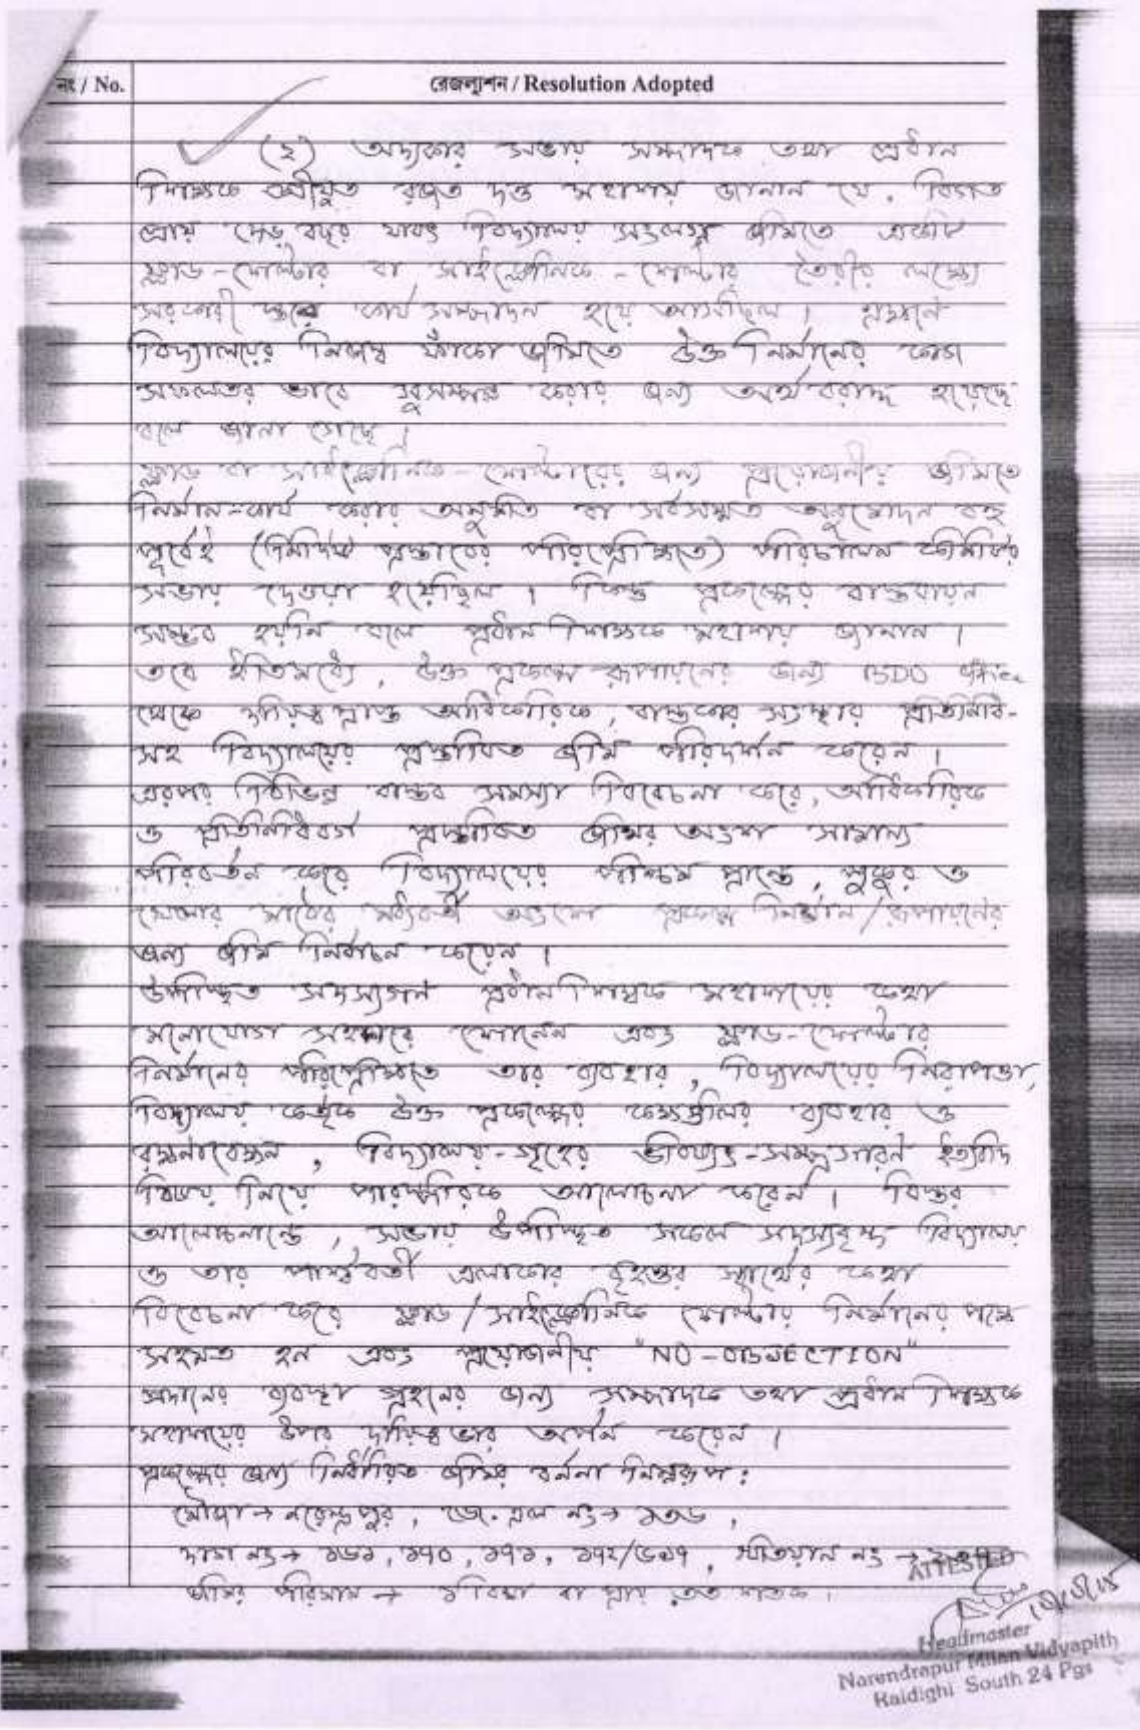 নং / No.
রেজল্যুশন / Resolution Adopted
(২) অদ্যকার সভায় সম্পাদক তথা প্রধান
শিক্ষক শ্রীযুত রজত দত্ত মহাশয় জানান যে, বিগত
প্রায় দেড় বছর যাবৎ বিদ্যালয় সংলগ্ন জমিতে একটি
ফ্লাড-শেল্টার বা সাইক্লোনিক-শেল্টার তৈরীর লক্ষ্যে
সরকারী স্তরে কার্য সম্পাদন হয়ে আসছিল।
বিদ্যালয়ের নিজস্ব ফাঁকা জমিতে উক্ত নির্মানের কাজ
সফলতর ভাবে সুসম্পন্ন করার জন্য অর্থ বরাদ্দ হয়েছে
বলে জানা গেছে।
ফ্লাড বা সাইক্লোনিক-শেল্টারের জন্য প্রয়োজনীয় জমিতে
নির্মান-কার্য করার অনুমতি বা সর্বসম্মত অনুমোদন বহু
পূর্বেই (নির্দিষ্ট প্রস্তাবের পরিপ্রেক্ষিতে) পরিচালন কমিটির
সভায় দেওয়া হয়েছিল। কিন্তু প্রকল্পের বাস্তবায়ন
সম্ভব হয়নি বলে প্রধান শিক্ষক মহাশয় জানান।
তবে ইতিমধ্যে, উক্ত প্রকল্প রূপায়নের জন্য BDO Office
থেকে দায়িত্ব প্রাপ্ত আধিকারিক, বাস্তুকার সংস্থার প্রতিনিধি-
সহ বিদ্যালয়ের প্রস্তাবিত জমি পরিদর্শন করেন।
এরপর বিভিন্ন বাস্তব সমস্যা বিবেচনা করে, আধিকারিক
ও প্রতিনিধিবর্গ প্রস্তাবিত জমির অংশ সামান্য
পরিবর্তন করে বিদ্যালয়ের পশ্চিম প্রান্তে, পুকুর ও
খেলার মাঠের মধ্যবর্তী অংশে প্রকল্প নির্মান/রূপায়নের
জন্য জমি নির্বাচন করেন।
উপস্থিত সদস্যগন প্রধান শিক্ষক মহাশয়ের কথা
মনোযোগ সহকারে শোনেন এবং ফ্লাড-শেল্টার
নির্মানের পরিপ্রেক্ষিতে তার ব্যবহার, বিদ্যালয়ের নিরাপত্তা,
বিদ্যালয় কর্তৃক উক্ত প্রকল্পের কক্ষগুলির ব্যবহার ও
রক্ষনাবেক্ষন, বিদ্যালয়-গৃহের ভবিষ্যৎ-সম্প্রসারন ইত্যাদি
বিষয় নিয়ে পারস্পরিক আলোচনা করেন। বিস্তর
আলোচনান্তে, সভায় উপস্থিত সকল সদস্যবৃন্দ বিদ্যালয়
ও তার পার্শ্ববর্তী এলাকার বৃহত্তর স্বার্থের কথা
বিবেচনা করে ফ্লাড/সাইক্লোনিক শেল্টার নির্মানের পক্ষে
সহমত হন এবং প্রয়োজনীয় "NO-OBJECTION"
প্রদানের ব্যবস্থা গ্রহনের জন্য সম্পাদক তথা প্রধান শিক্ষক
মহাশয়ের উপর দায়িত্ব ভার অর্পন করেন।
প্রকল্পের জন্য নির্ধারিত জমির বর্ননা নিম্নরূপ:
মৌজা → নরেন্দ্রপুর, জে. এল নং → ১৩৬,
দাগ নং → ১৬৯, ১৭০, ১৭১, ১৭২/৬১৭, খতিয়ান নং →
জমির পরিমান → ১ বিঘা বা প্রায় ৩৩ শতক।
ATTESTED
Headmaster
Narendrapur Milan Vidyapith
Raidighi South 24 Pgs